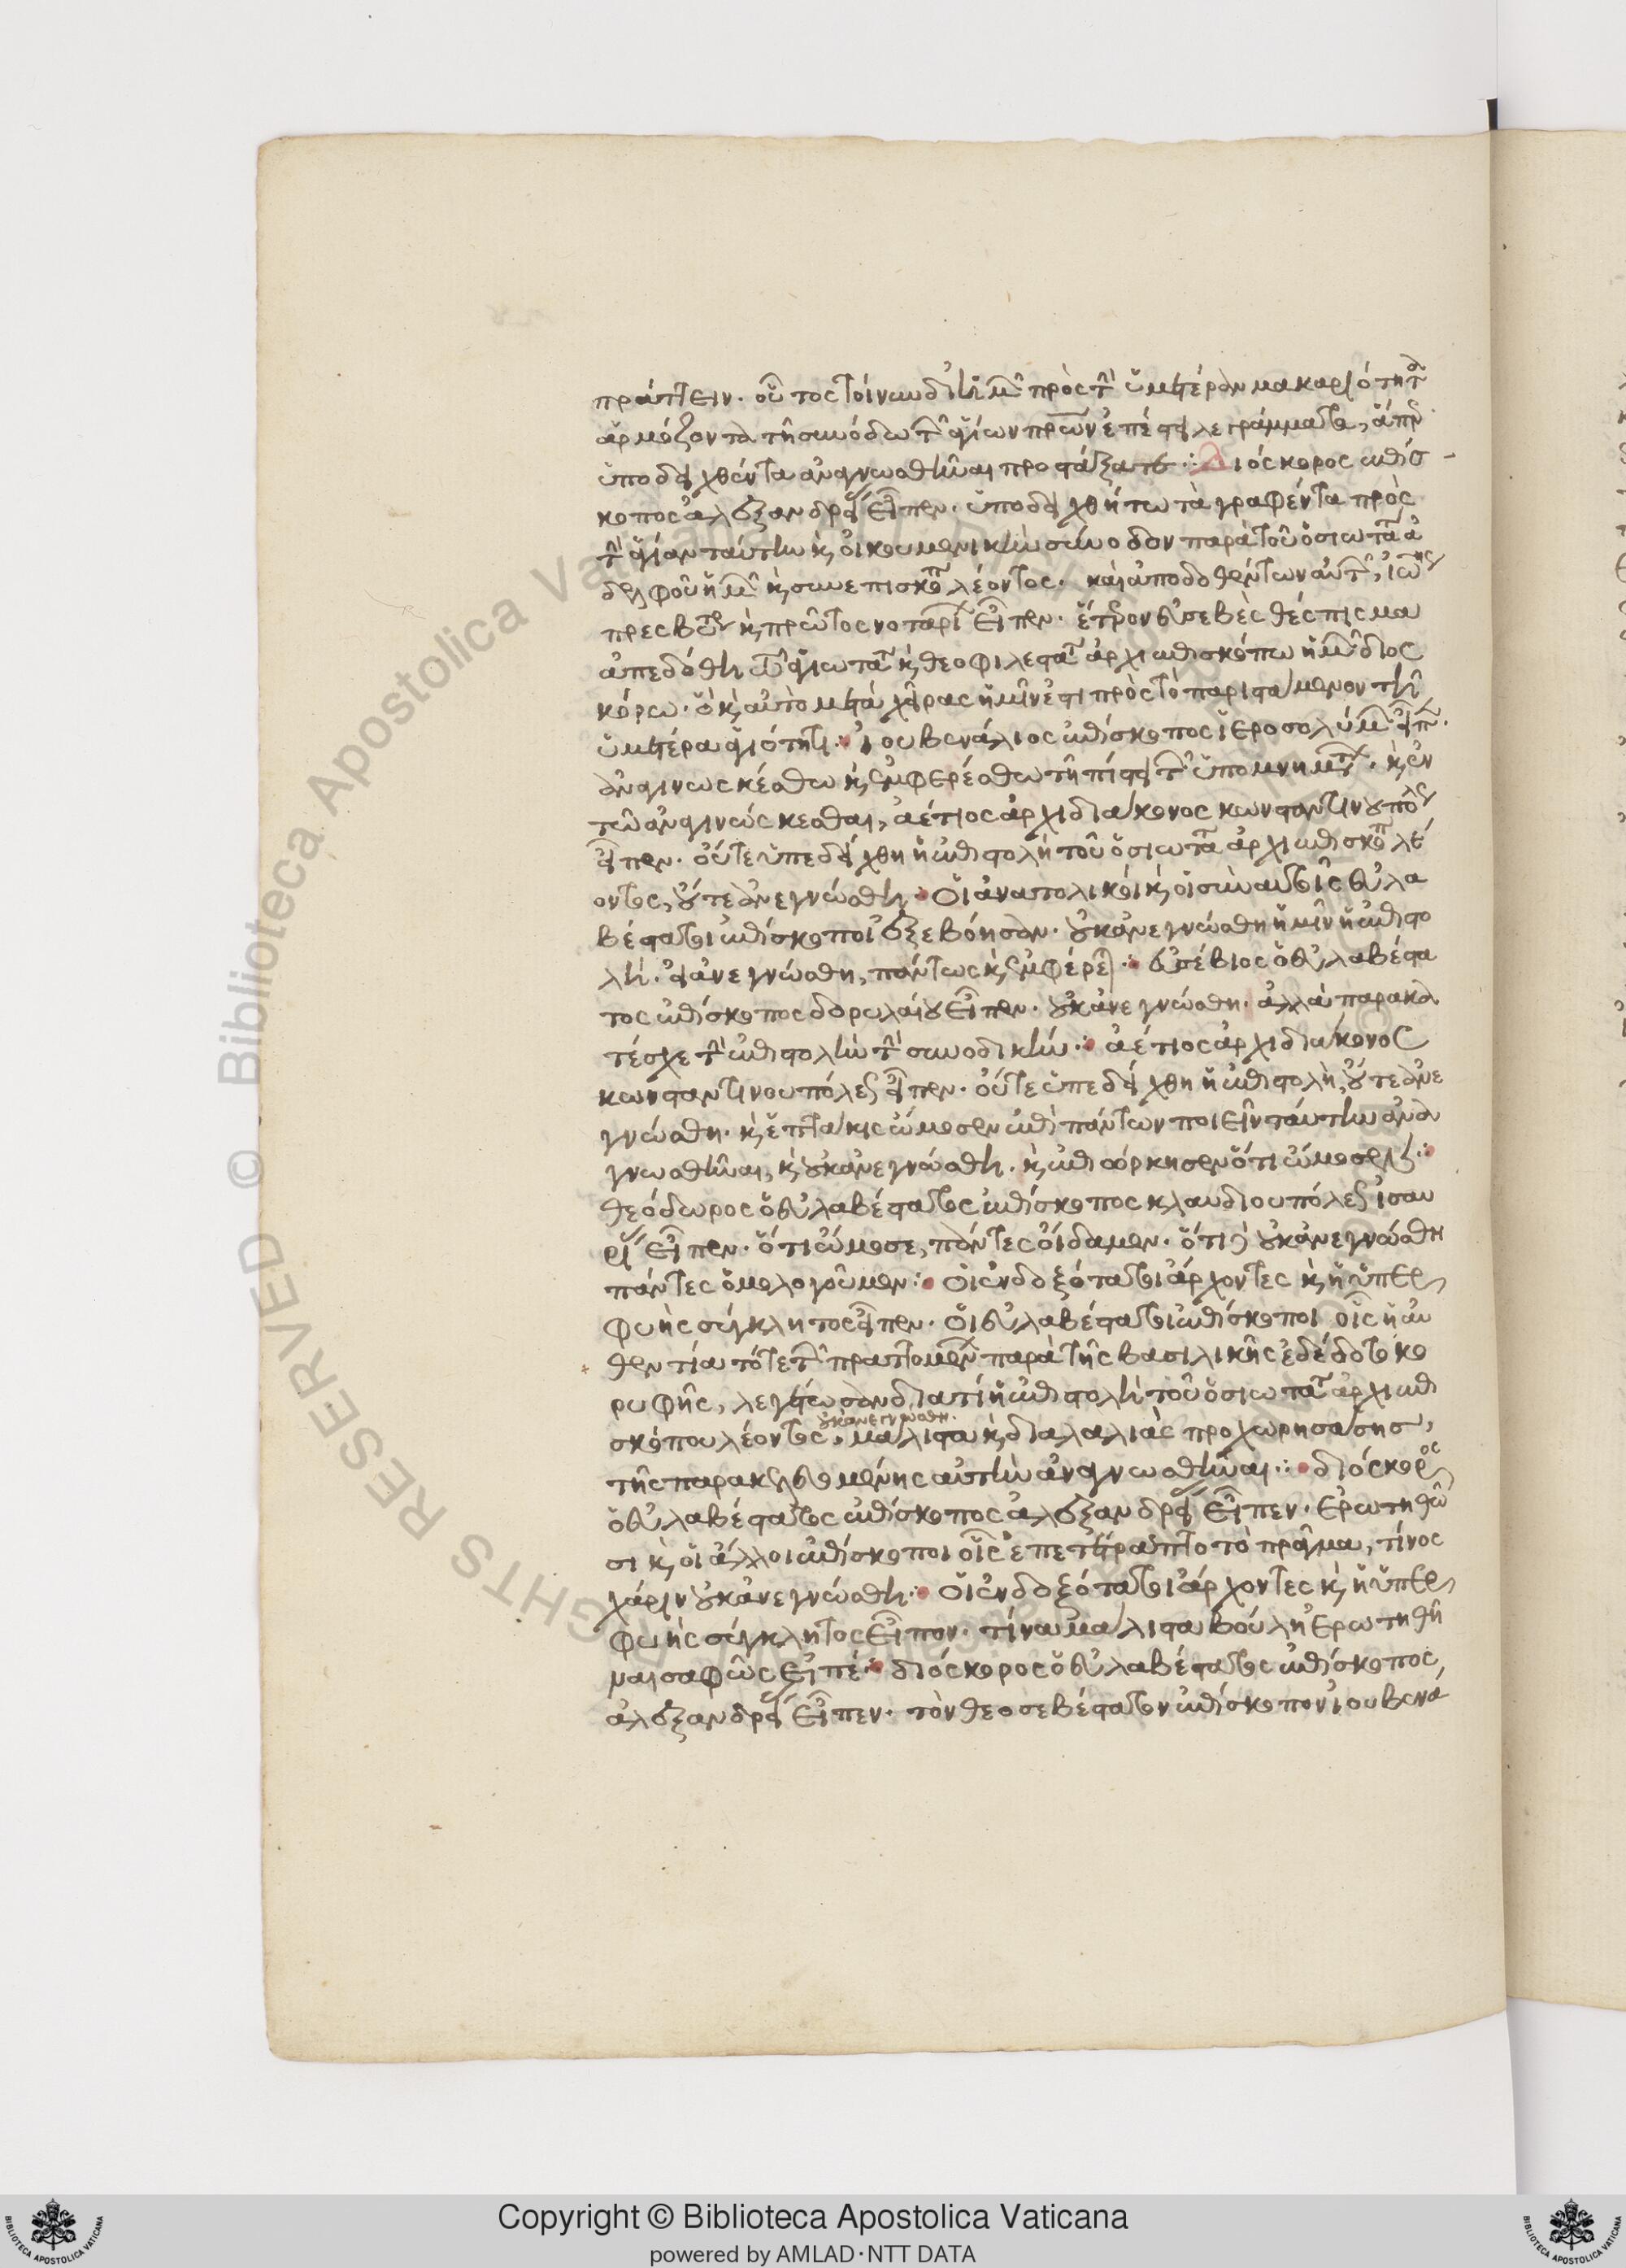 πράττειν. οὗτος τοίνυν δι' ἡμῶν πρὸς τὴν ὑμετέραν μακαριότητα
ἁρμόζοντα τῇ συνόδῳ τῶν ἁγίων πατέρων ἐπέστειλε γράμματα, ἅπερ
ὑποδειχθέντα ἀναγνωσθῆναι προστάξατε ·:· Διόσκορος ἐπίσ
κοπος ἀλεξανδρείας εἶπεν. ὑποδειχθήτω τὰ γραφέντα πρὸς
τὴν ἁγίαν ταύτην καὶ οἰκουμενικὴν σύνοδον παρὰ τοῦ ὁσιωτάτου ἀ
δελφοῦ ἡμῶν καὶ συνεπισκόπου λέοντος. καὶ ἀποδοθέντων αὐτῶν, ἰωάννης
πρεσβύτερος καὶ πρῶτος νοταρίων εἶπεν. ἕτερον εὐσεβὲς θέσπισμα
ἀπεδόθη τῷ ἁγιωτάτῳ καὶ θεοφιλεστάτῳ ἀρχιεπισκόπῳ ἡμῶν διος
κόρῳ. ὃ καὶ αὐτὸ μετὰ χεῖρας ἡμῖν ἐστι πρὸς τὸ παριστάμενον τῇ
ὑμετέρα ἁγιότητι ·:· ἰουβενάλιος ἐπίσκοπος ἱεροσολύμων εἶπεν.
ἀναγινωσκέσθω καὶ ἐμφερέσθω τῇ πίστει τῶν ὑπομνημάτων. καὶ ἐν
τῷ ἀναγινώσκεσθαι, ἀέτιος ἀρχιδιάκονος κωνσταντινουπόλεως
εἶπεν. οὔτε ὑπεδείχθη ἡ ἐπιστολὴ τοῦ ὁσιωτάτου ἀρχιεπισκόπου λέ
οντος, οὔτε ἀνεγνώσθη · Οἱ ἀνατολικοὶ καὶ οἱ σὺν αὐτοῖς εὐλα
βέστατοι ἐπίσκοποι ἐξεβόησαν. οὐκ ἀνεγνώσθη ἡμῖν ἡ ἐπιστο
λή. εἰ ἀνεγνώσθη, πάντως καὶ ἐμφέρεται ·:· εὐσέβιος ὁ εὐλαβέστα
τος ἐπίσκοπος δορυλαίου εἶπεν. οὐκ ἀνεγνώσθη. ἀλλὰ παρακα
τέσχε τὴν ἐπιστολὴν τὴν συνοδικήν ·:· ἀέτιος ἀρχιδιάκονος
κωνσταντινουπόλεως εἶπεν. οὔτε ὑπεδείχθη ἡ ἐπιστολή, οὔτε ἀνε
γνώσθη. καὶ ἑπτάκις ὤμοσεν ἐπὶ πάντων ποιεῖν ταύτην ἀνα
γνωσθῆναι, καὶ οὐκ ἀνεγνώσθη. καὶ ἐπιώρκησεν ὅτι ὤμοσεν ·:·
θεόδωρος ὁ εὐλαβέστατος ἐπίσκοπος κλαυδιουπόλεως ἰσαυ
ρίας εἶπεν. ὅτι ὤμοσε, πάντες οἴδαμεν. ὅτι δὲ οὐκ ἀνεγνώσθη
πάντες ὁμολογοῦμεν ·:· Οἱ ἐνδοξότατοι ἄρχοντες καὶ ἡ ὑπερ
φυὴς σύγκλητος εἶπεν. οἱ εὐλαβέστατοι ἐπίσκοποι οἷς ἡ αὐ
θεντία τότε τῶν πραττομένων παρὰ τῆς βασιλικῆς ἐδέδοτο κο
ρυφῆς, λεγέτωσαν διατί ἡ ἐπιστολὴ τοῦ ὁσιωτάτου ἀρχιεπι
οὐκ ἀνεγνώσθη.
σκόπου λέοντος, μάλιστα καὶ διαλαλιὰς προχωρησάσης,
τῆς παρακελευομένης αὐτὴν ἀναγνωσθῆναι ·:· διόσκορος
ὁ εὐλαβέστατος ἐπίσκοπος ἀλεξανδρείας εἶπεν. ἐρωτηθῶ
σι καὶ οἱ ἄλλοι ἐπίσκοποι οἷς ἐπετέτραπτο τὸ πρᾶγμα, τίνος
χάριν οὐκ ἀνεγνώσθη ·:· Οἱ ἐνδοξότατοι ἄρχοντες καὶ ἡ ὑπερ
φυὴς σύγκλητος εἶπον. τίνα μάλιστα βούλη ἐρωτηθῆ
ναι σαφῶς εἰπέ · διόσκορος ὁ εὐλαβέστατος ἐπίσκοπος
ἀλεξανδρείας εἶπεν. τὸν θεοσεβέστατον ἐπίσκοπον ἰουβενα
© Biblioteca Apostolica Vaticana
RIGHTS RESERVED
Copyright © Biblioteca Apostolica Vaticana
powered by AMLAD·NTT DATA